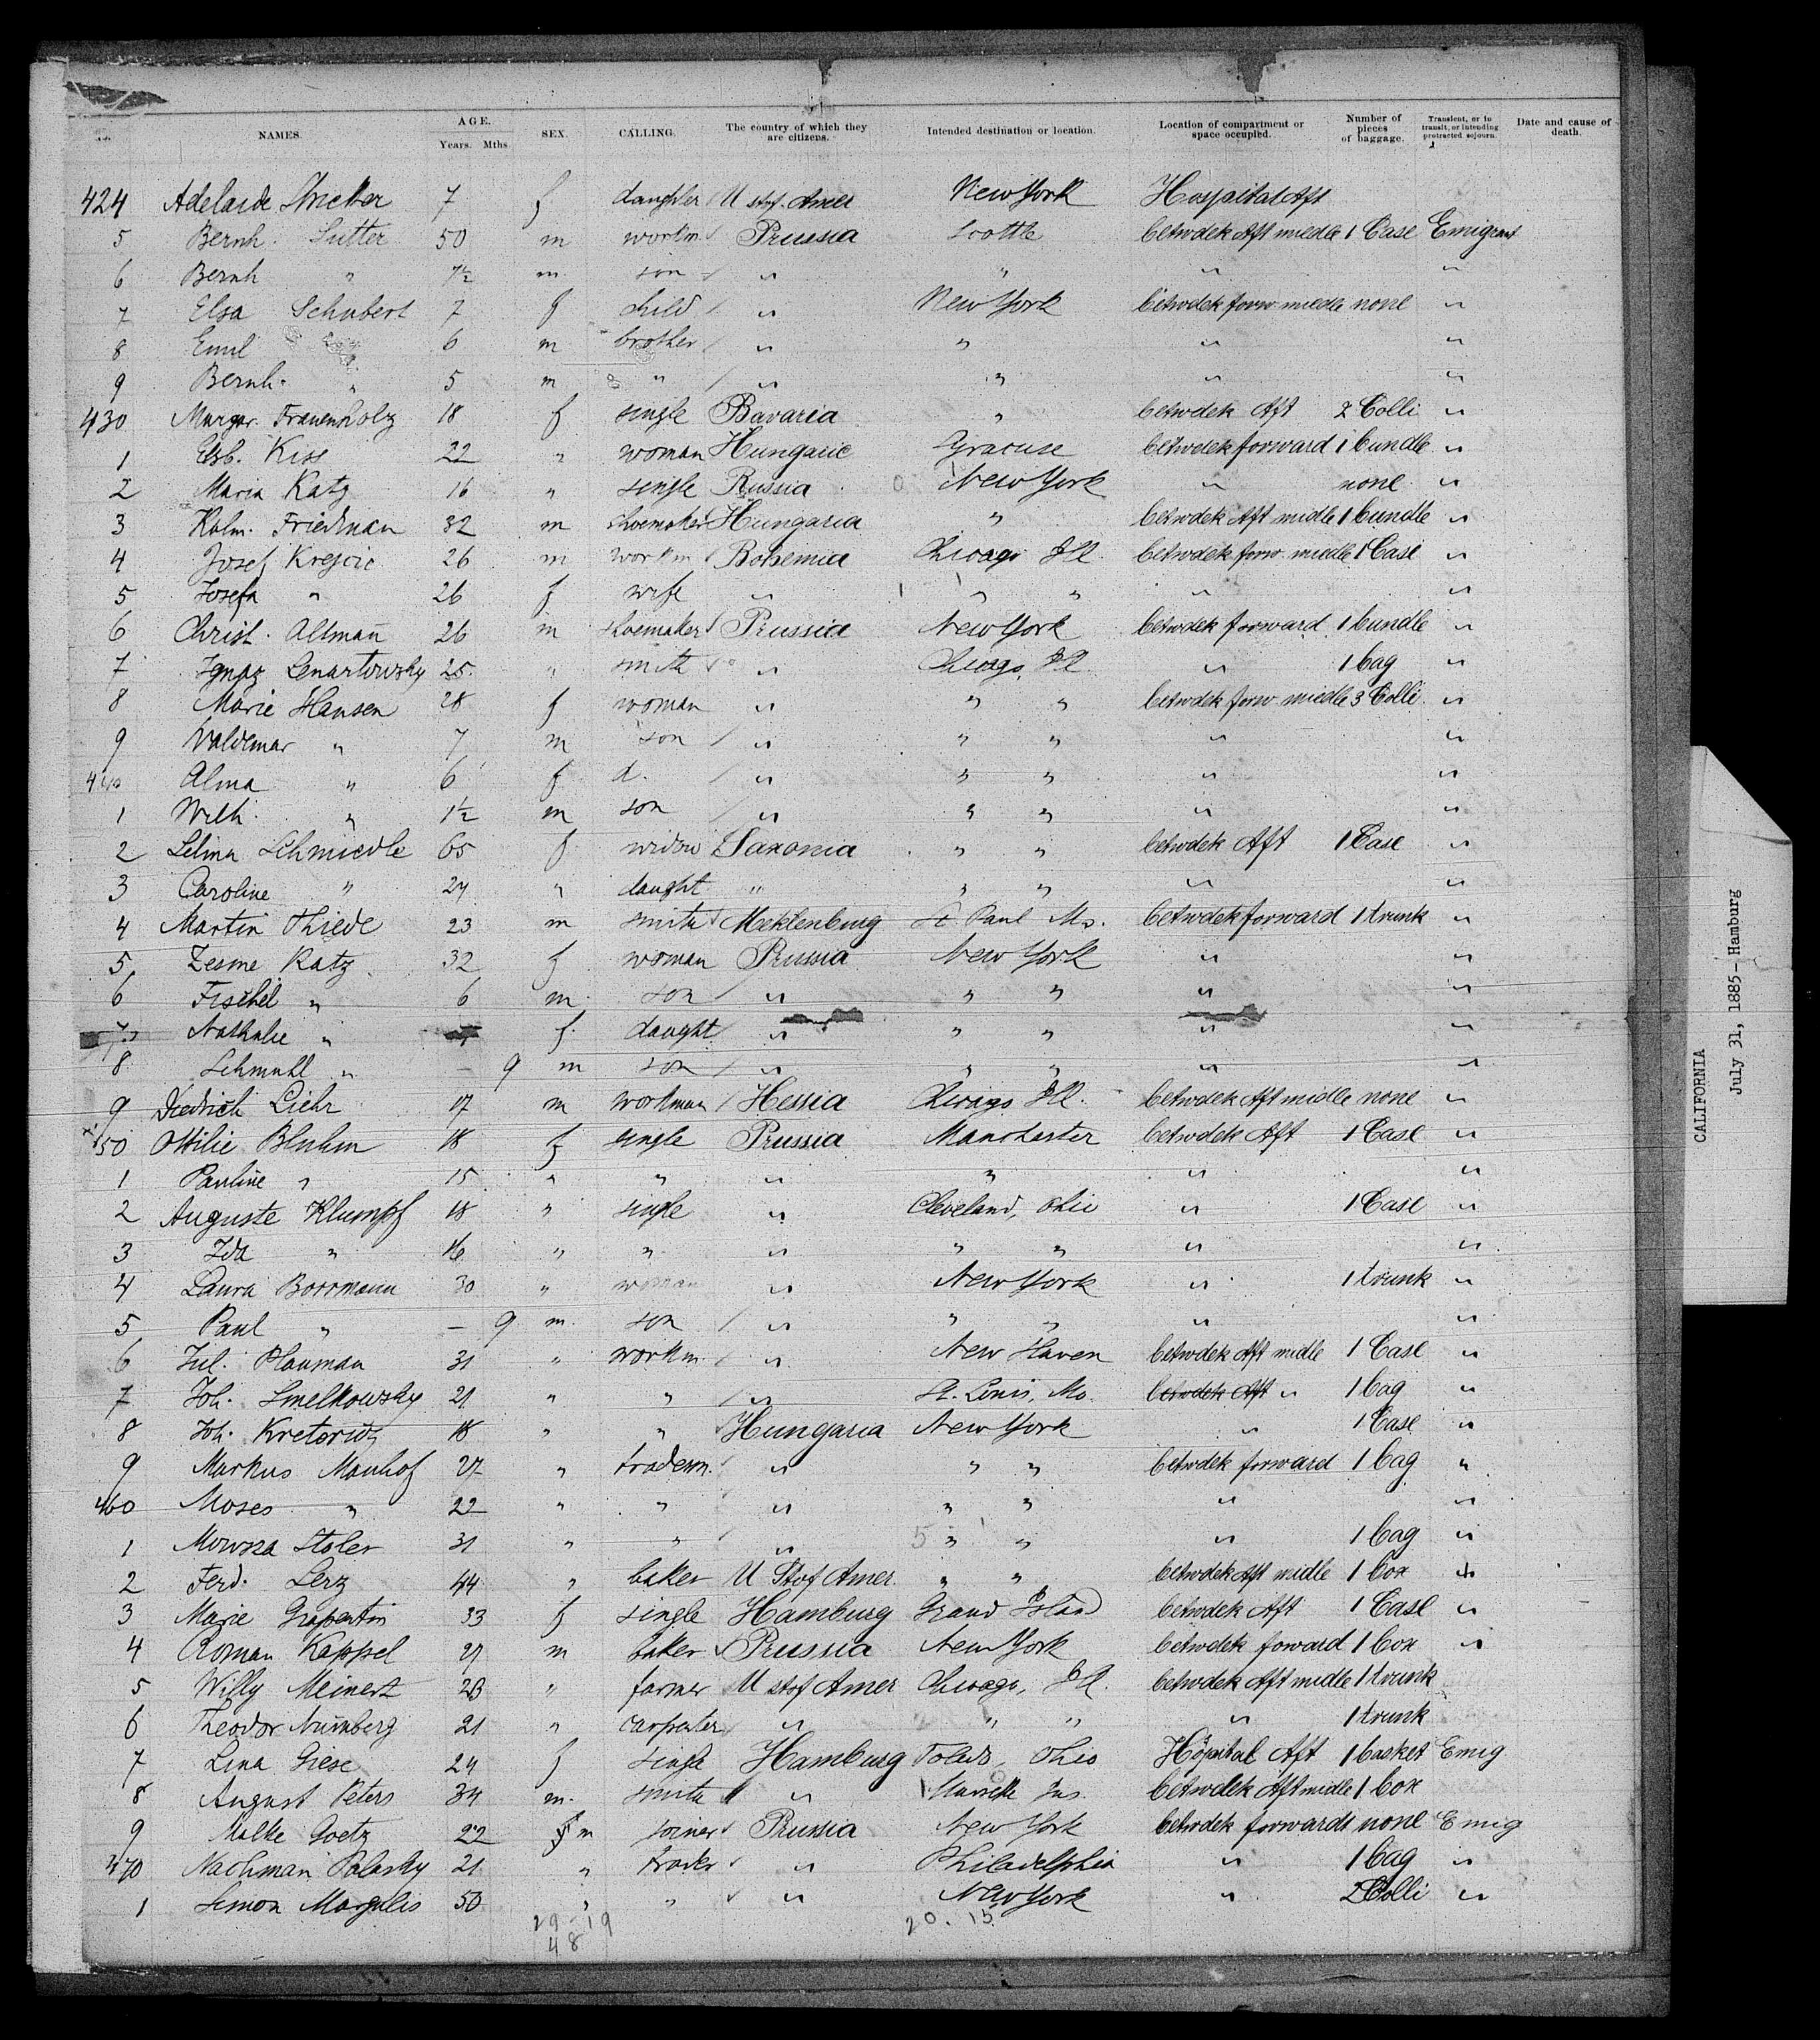 NAMES. AGE. Years. Mths SEX. CALLING. The country of which they are citizens. Intended destination or location. Location of compartment or space occupied. Number of pieces of baggage. Transient, or in transit, or intending protracted sojourn. Date and cause of death.
424 Adelaide Stricker 7 f daughter U stof Amer New York Hospital Aft
5 Bernh. Sutter 50 m workm Prussia betwdek Aft midle 1 Case Emigrant
6 Bernh " m son " " " "
7 Elsa Schubert 7 f child " New York betwdek forw midle none "
8 Emil " 6 m brother " " " "
9 Bernh. " 5 m " " " " "
430 Margar. Frauenholz 18 f single Bavaria " betwdek Aft 2 Colli "
1 Elsb. Kiss 22 " woman Hungarie Syracuse betwdek forward 1 bundle "
2 Maria Katz 16 " single Russia New York " none "
3 Kalm. Friedman 32 m shoemaker Hungaria " betwdek Aft midle 1 bundle "
4 Josef Krejcic 26 m workm Bohemia Chicago Ill. betwdek forw midle 1 Case "
5 Josefa " 26 f wife " " " " "
6 Christ. Altman̄ 26 m shoemaker Prussia New York betwdek forward 1 bundle "
7 Ignaz Lenartowsky 25 " smith " Chicago, Ill. " 1 bag "
8 Marie Hansen 28 f woman " " " betwdek forw midle 3 Colli "
9 Waldemar " 7 m son " " " " "
440 Alma " 6 f d. " " " " "
1 Wilh. " 1½ m son " " " " "
2 Selma Schmiedle 65 f widow Saxonia " " betwdek Aft 1 Case "
3 Caroline " 24 " daught " " " " "
4 Martin Thiede 23 m smith Meklenburg St. Paul betwdek forward 1 trunk "
5 Katz 32 f woman Prussia New York " "
6 Fischel " 6 m son " " " " "
7 Nathalie " f daught " " " " "
8 Schmuhl " – 9 m son " " " " "
9 Diedrich Liehr 17 m workman Hessia Chicago Ill. betwdek Aft midle none "
450 Ottilie Bluhm 18 f single Prussia Manchester betwdek Aft 1 Case "
1 Pauline " 15 " " " " " "
2 Auguste Klumpf 18 " single " Cleveland, Ohio " 1 Case "
3 Ida " 16 " " " " " " "
4 Laura Borrmann 30 " woman " New York " 1 trunk "
5 Paul " – 9 m. son " " " " "
6 Jul. Plauman 31 " workm. " New Haven betwdek Aft midle 1 Case "
7 Joh. Smelkowsky 21 " " " St. Louis, Mo. betwdek Aft " 1 bag "
8 Joh. 18 " " Hungaria New York " 1 Case "
9 Markus Manhof 27 " tradesm. " " " betwdek forward 1 bag "
460 Moses " 22 " " " " " " "
1 Stoler 31 " " " " " " 1 bag "
2 Ferd. Lerz 44 " baker U Stof Amer. " " betwdek Aft midle 1 box
3 Marie Grapentin 33 f single Hamburg Grand Island betwdek Aft 1 Case "
4 Roman Kappel 27 m baker Prussia New York betwdek foward 1 box "
5 Willy Meinert 23 " farmer U stof Amer Chicago, Ill. betwdek Aft midle 1 trunk
6 Theodor Nürnberg 21 " carpenter " " " " 1 trunk
7 Lina Giese 24 f single Hamburg Toledo, Ohio Hospital Aft 1 basket Emig
8 August Peters 34 m. smith " betwdek Aft midle 1 box
9 Malke Goetz 22 m joiner Prussia New York betwdek forwards none Emig
470 Nachman Polasky 21 " trader " Philadelphia " 1 bag "
1 Simon Margulis 50 " " " New York " 2 Colli "
29-19 20. 15
48
CALIFORNIA
July 31, 1885 – Hamburg